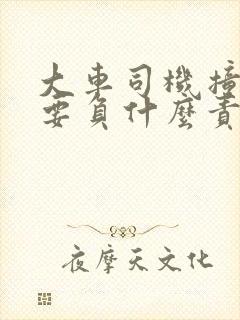 大車司機撞
要負什麼責
夜摩天文化